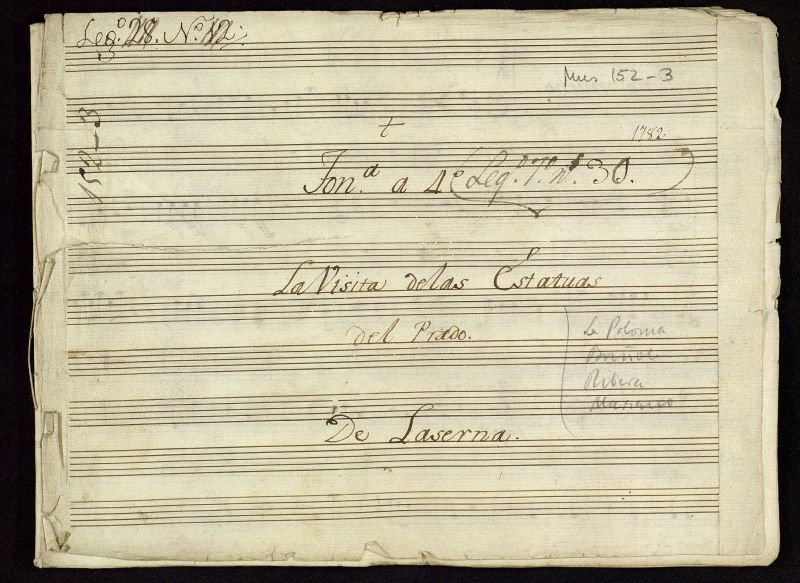 Leg.º 28. N.º 12.
3
Mus 152-3
152-3
1782
Ton.ª a 4º (Leg.º 7º n.º 30.)
La Visita de las Estatuas
del Prado.
La Poloma
Ribera
Mariano
De Laserna.